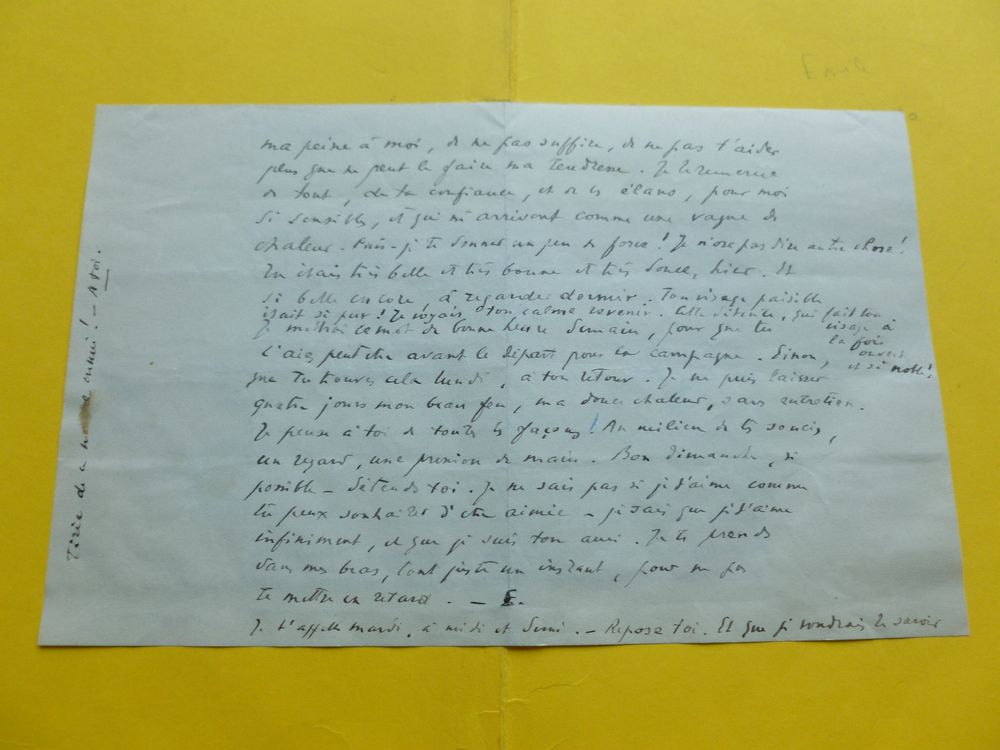 Emile
ma peine à moi, de ne pas suffire, de ne pas t'aider
plus que ne peut le faire ma tendresse. Je te remercie
de tout, de ta confiance, et de tes élans, pour moi
si sensibles, et qui m'arrivent comme une vague de
chaleur. Puis-je te donner un peu de force! Je n'ose pas dire autre chose!
Tu étais très belle et très bonne et très douce, hier. Et
si belle encore, à regarder dormir. Ton visage paisible
était si pur! Je voyais ton calme revenir. Cette détente, qui fait ton
visage à
la fois
ouvert
et si noble!
Je mettrai ce mot de bonne heure demain, pour que tu
l'aies, peut-être avant le départ pour la campagne. Sinon,
que tu trouves cela lundi, à ton retour. Je ne puis laisser
quatre jours mon beau feu, ma douce chaleur, sans entretien.
Je pense à toi de toutes les façons! Au milieu de tes soucis,
un regard, une pression de main. Bon dimanche, si
possible - détends toi. Je ne sais pas si je t'aime comme
tu peux souhaiter d'être aimée - je sais que je t'aime
infiniment, et que je suis ton ami. Je te prends
dans mes bras, tout juste un instant, pour ne pas
te mettre en retard. - E.
Je t'appelle mardi, à midi et demi. - Repose toi. Et que je voudrais te savoir
tirée de ennui! - A toi.